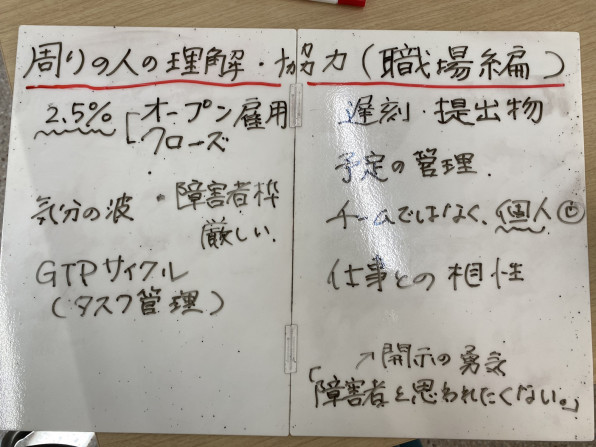 周りの人の理解・協力(職場編)
2.5% [オープン雇用
クローズ
気分の波 ・障害者枠
厳しい.
GTPサイクル
(タスク管理)
遅刻・提出物
予定の管理.
チームではなく、個人
仕事との相性
↗開示の勇気
「障害者と思われたくない。」